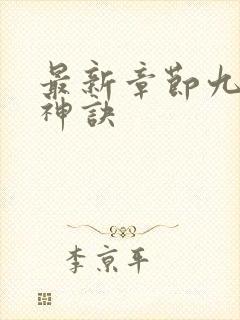 最新章節九
神訣
李京平